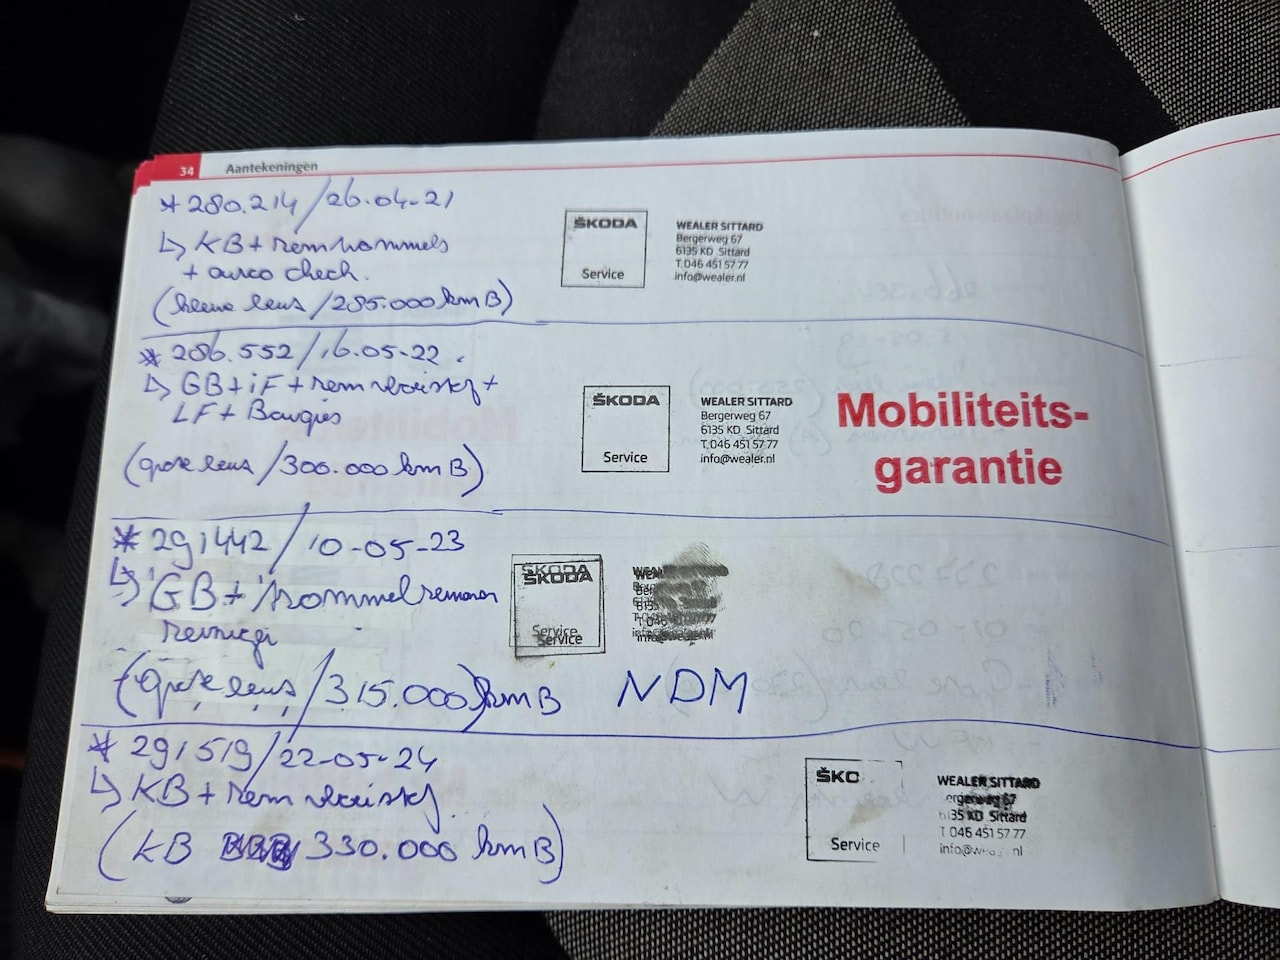 34 Aantekeningen
* 280.214 / 26-04-21
↳ KB + remtrommels
+ airco check.
(kleine beurs / 285.000 km B)
ŠKODA
Service
WEALER SITTARD
Bergerweg 67
6135 KD Sittard
T.046 451 57 77
info@wealer.nl
* 286.552 / 16-05-22.
↳ GB + iF + remvloeistof +
LF + Bougies
(grote beurs / 300.000 km B)
ŠKODA
Service
WEALER SITTARD
Bergerweg 67
6135 KD Sittard
T.046 451 57 77
info@wealer.nl
Mobiliteits-
garantie
* 291442 / 10-05-23
↳ GB + trommelremmen
reinigen
(grote beurs / 315.000) km B NDM
ŠKODA
ŠKODA
Service
Service
* 291519 / 22-05-24
↳ KB + remvloeistof
(KB 330.000 km B)
ŠKO
Service
WEALER SITTARD
ergerweg 67
6135 KD Sittard
T 046 451 57 77